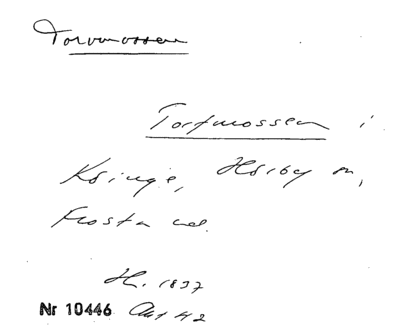 Torvmossen
Torfmossen i
Ksinge, Hörby sn,
Frosta hd.
H. 1837
Nr 10446 Akt 42